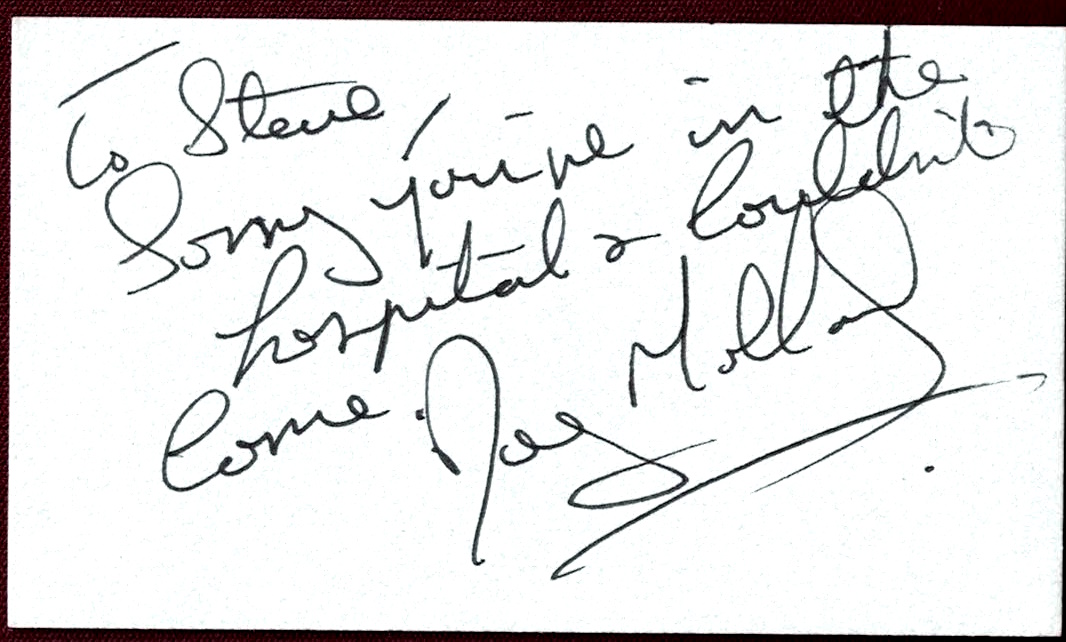 To Steve
Sorry you're in the
hospital & couldn't
come. Joey Molland